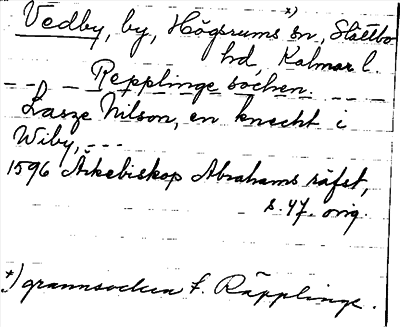 Vedby, by, Högsrums sn, Slättbo
hd, Kalmar l.
— — Repplinge sochen. — — —
Lasze Nilson, en knecht i
Wiby, - - -
1596 Ärkebiskop Abrahams räfst,
s. 47. orig.
*) grannsocken t. Räpplinge.